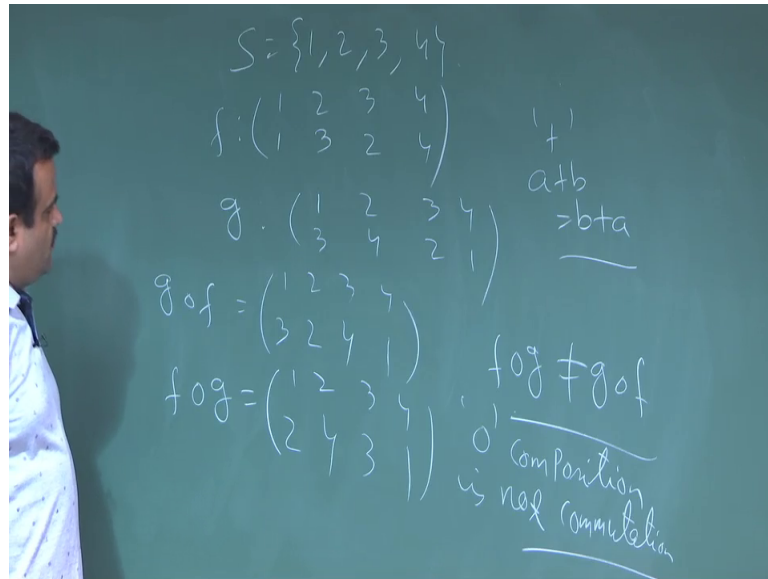 S={1,2,3,4}
f:(1 2 3 4
1 3 2 4)
g.(1 2 3 4
3 4 2 1)
gof=(1 2 3 4
3 2 4 1)
fog=(1 2 3 4
2 4 3 1)
'+'
a+b
=b+a
fog≠gof
'o' composition
is not commutation